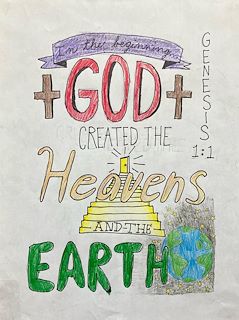 In the beginning...
GOD
CREATED THE
Heavens
AND THE
EARTH
GENESIS
1:1